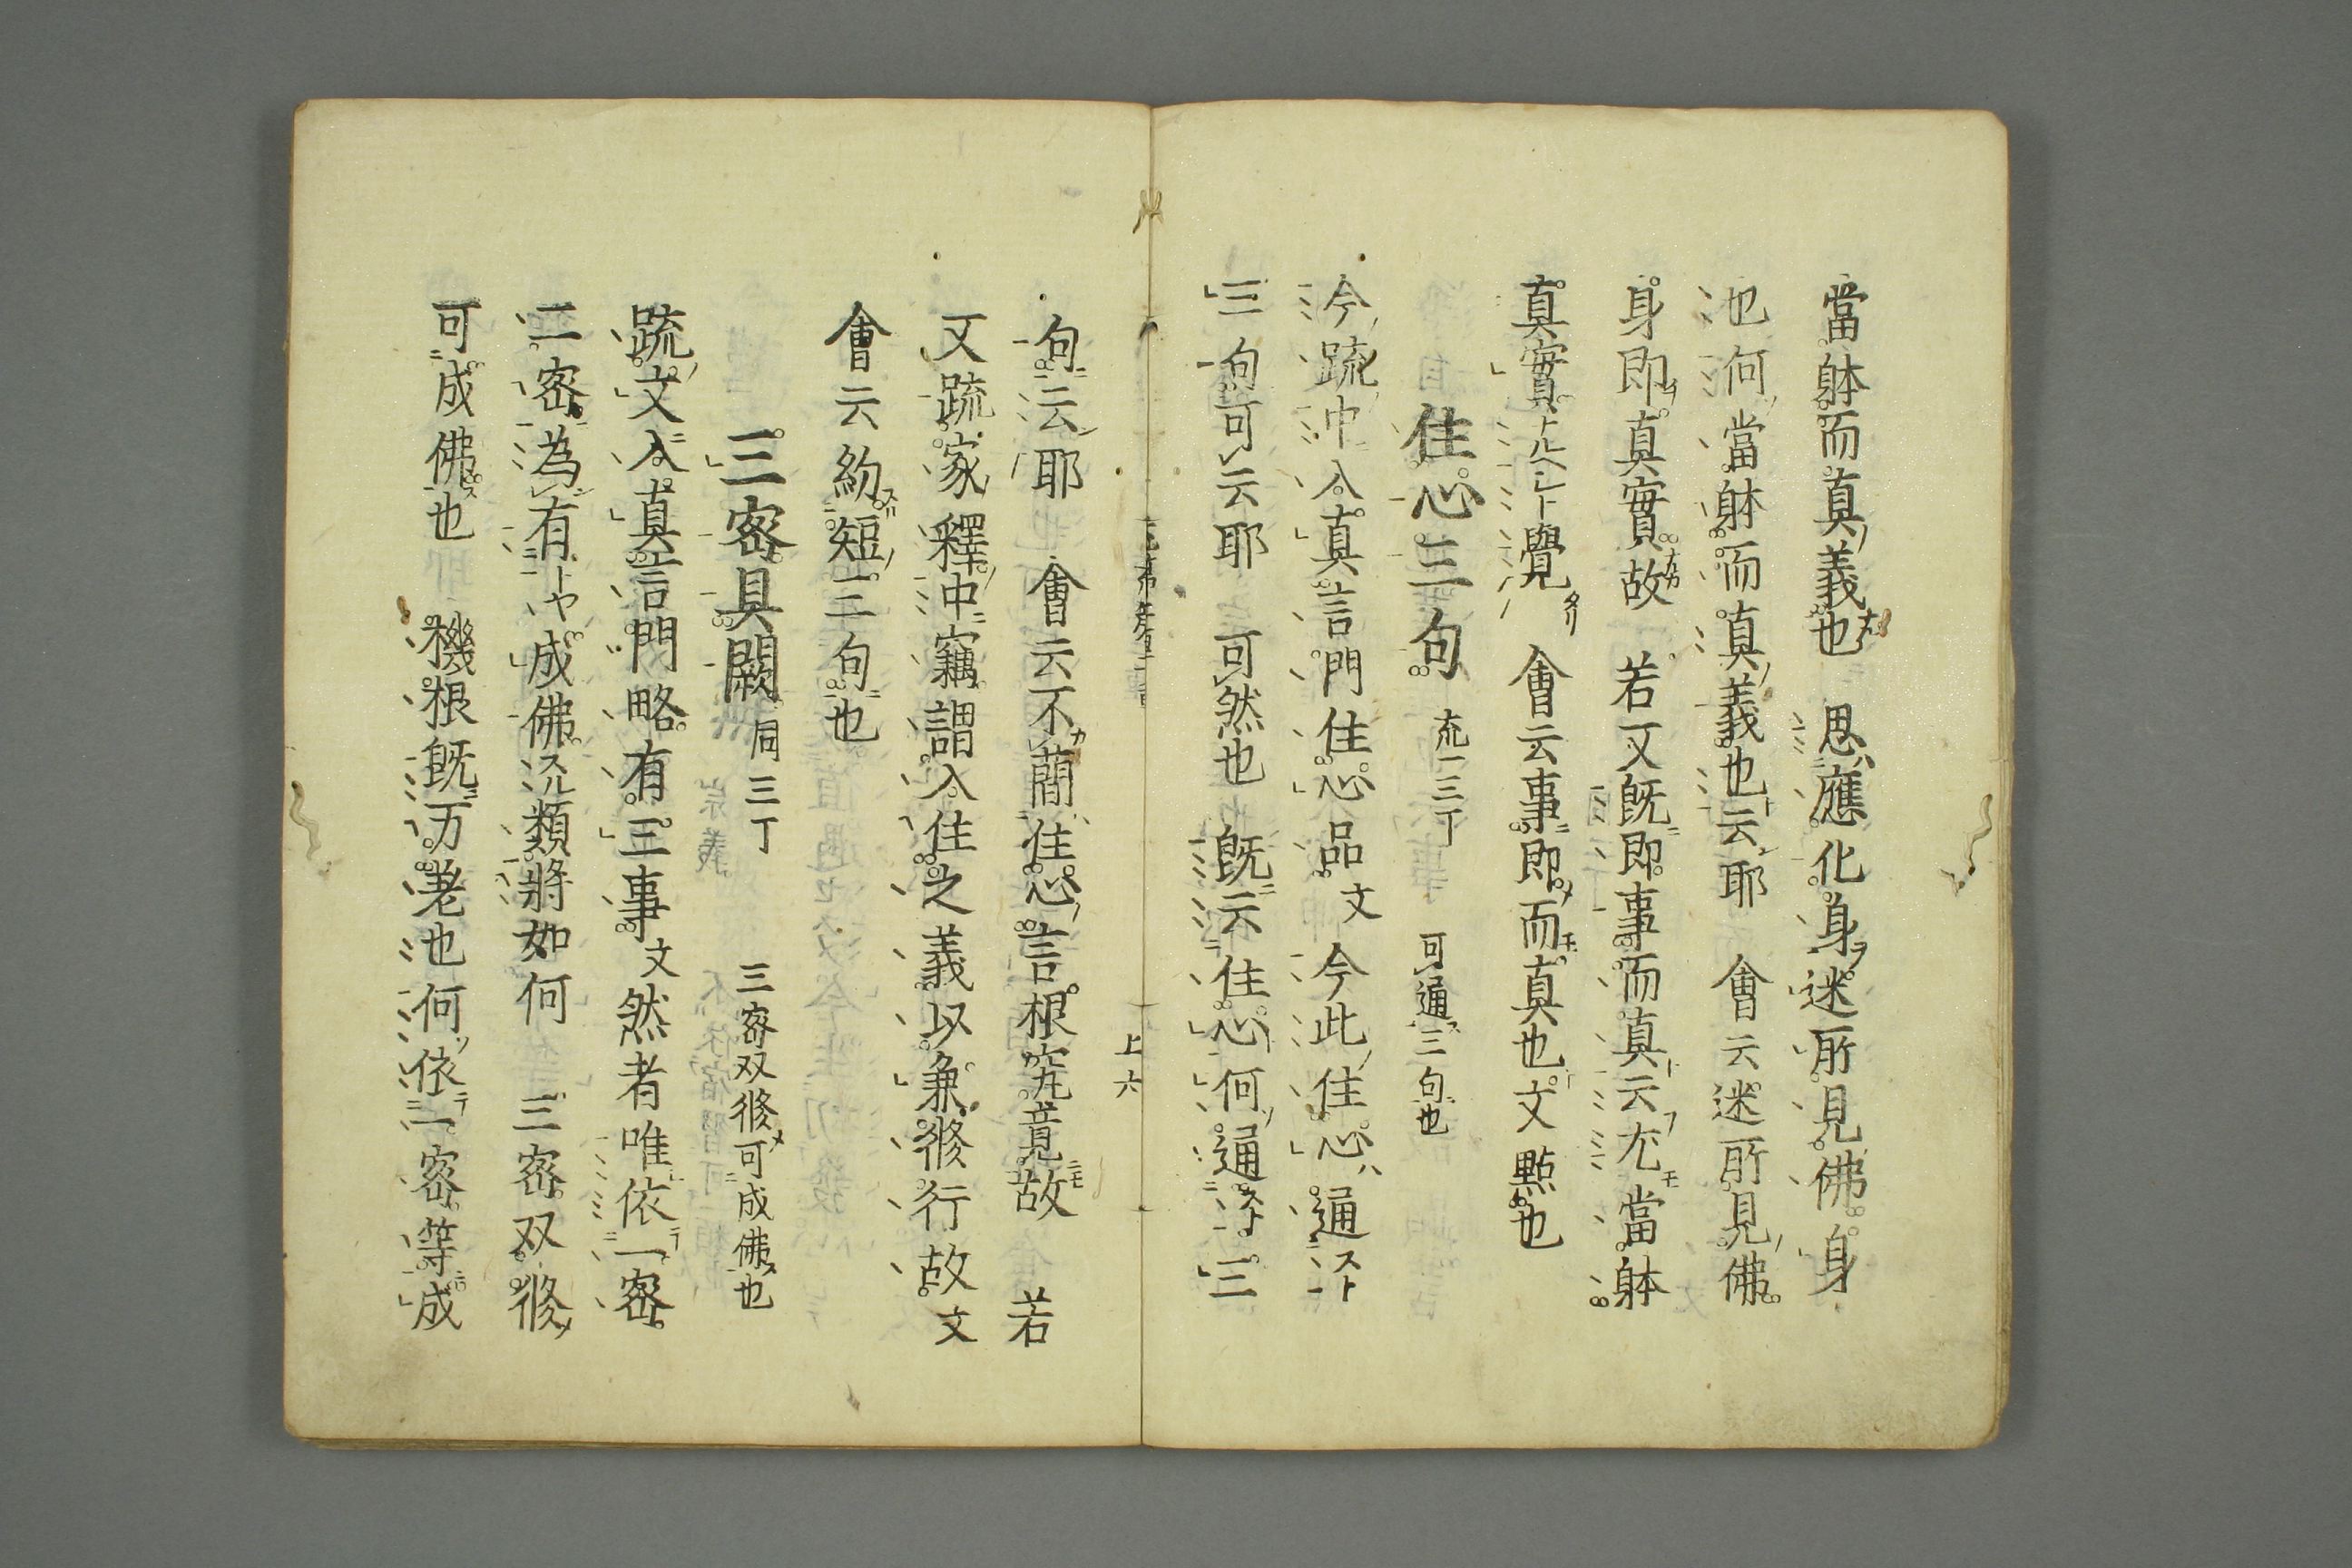 當躰而真義也　思應化身迷所見佛身
也何當躰而真義也云耶　會云迷所見佛
身即真實故　若又既即事而真云尤當躰
真實ナルヘシト覺　會云事即而真也文點也
住心三句　充一三丁　可通三句也
今疏中入真言門住心品文　今此住心通スト
三句可云耶　可然也　既云住心何通スト三
句云耶　會云不蘭住心言根究竟故　若
又疏家釋中竊謂入住之義以兼修行故文
會云約短三句也
三密具闕　同三丁　三密双修可成佛也
疏文入真言門略有三事文然者唯依一密
二密為有トヤ成佛スル類將如何　三密双修
可成佛也　機根既万差也何依一密等成
上六